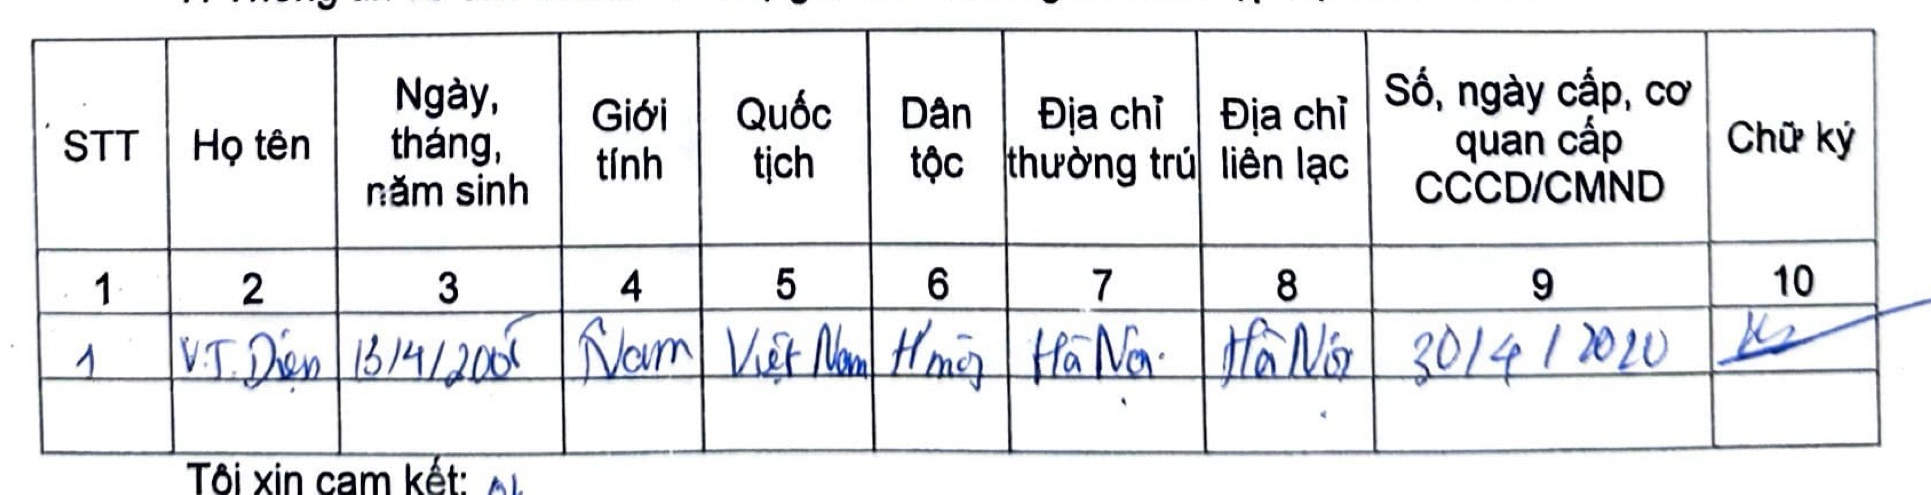 STT Họ tên Ngày, tháng, năm sinh Giới tính Quốc tịch Dân tộc Địa chỉ thường trú Địa chỉ liên lạc Số, ngày cấp, cơ quan cấp CCCD/CMND Chữ ký
1 2 3 4 5 6 7 8 9 10
1 V.T. Diện 13/4/2005 Nam Việt Nam H'mông Hà Nội Hà Nội 30/4/2020
Tôi xin cam kết: